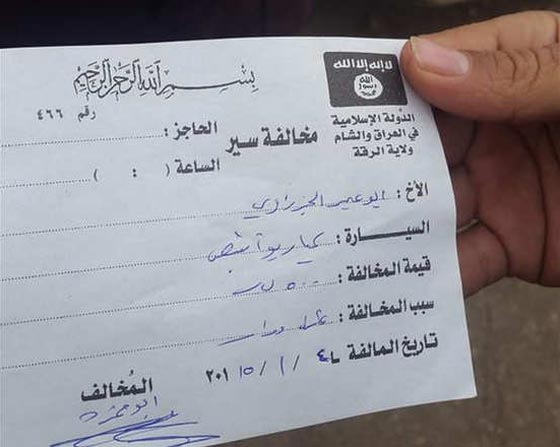 بسم الله الرحمن الرحيم
لا إله إلا الله
الله
رسول
محمد
الدولة الإسلامية
في العراق والشام
ولاية الرقة
رقم ٤٦٦
مخالفة سير
الحاجز :
الساعة ( : )
الأخ : ابو عمير الجزراوي
السيــــارة : كيا ريو
قيمة المخالفة : ٥٠٠ ل.س
سبب المخالفة :
تاريخ المالفة
٢٠١
المُخالف
ابو حمزة